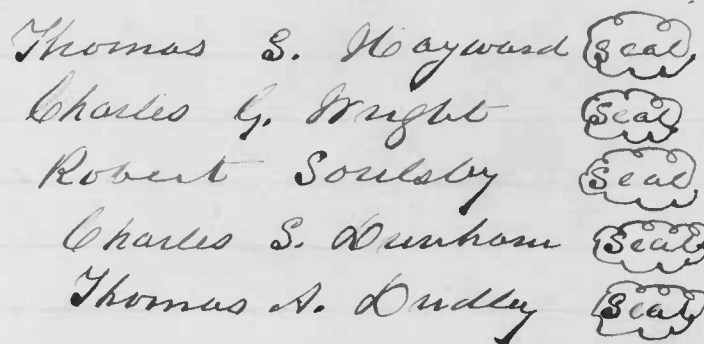 Thomas S. Hayward Seal
Charles G. Wright Seal
Robert Soulsby Seal
Charles S. Dunham Seal
Thomas A. Dudley Seal